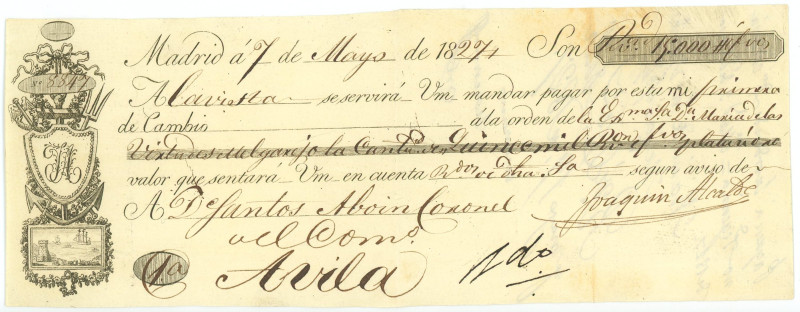 Madrid á 7 de Mayo de 1827 Son Rs. vn. 15,000 efvos
No 3347
A la vista se servirá Vm mandar pagar por esta mi primera
de Cambio á la orden de la Exma Sa Da Maria de las
Virtudes Melgarejo la Cantd de Quince mil Rs vn efvos plata ú oro
valor que sentará Vm en cuenta Rdos de dha. Sa segun aviso de
A Dn Santos Aboin Coronel Joaquin Alcalde
del Como.
1a Avila